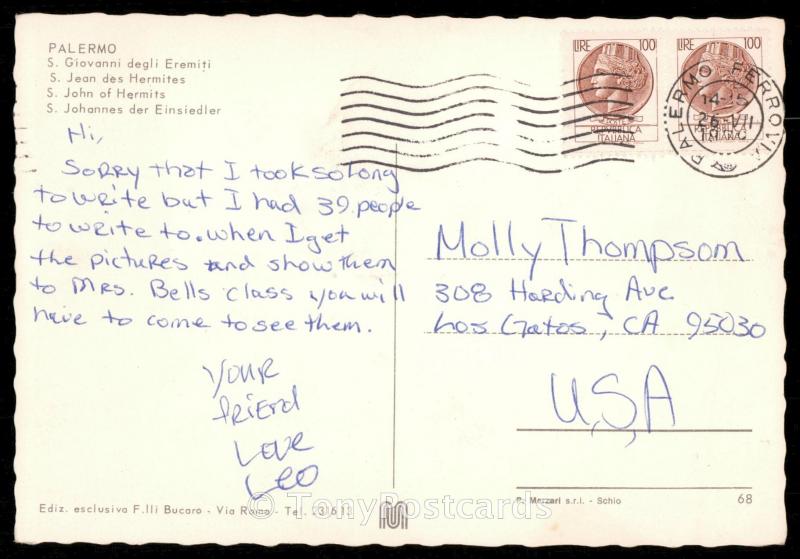 PALERMO
S. Giovanni degli Eremiti
S. Jean des Hermites
S. John of Hermits
S. Johannes der Einsiedler
LIRE 100
REPUBBLICA
ITALIANA
LIRE 100
REPUBBLICA
ITALIANA
PALERMO FERROVIA
26 VII
Hi,
Sorry that I took so long
to write but I had 39 people
to write to. when I get
the pictures and show them
to Mrs. Bells class you will
have to come to see them.
your
friend
Love
Leo
Molly Thompsom
308 Harding Ave
Los Gatos, CA 95030
U,S,A
Ediz. esclusiva F.lli Bucaro - Via Roma - Tel.
© TonyPostcards
Mezzari s.r.l. - Schio
68